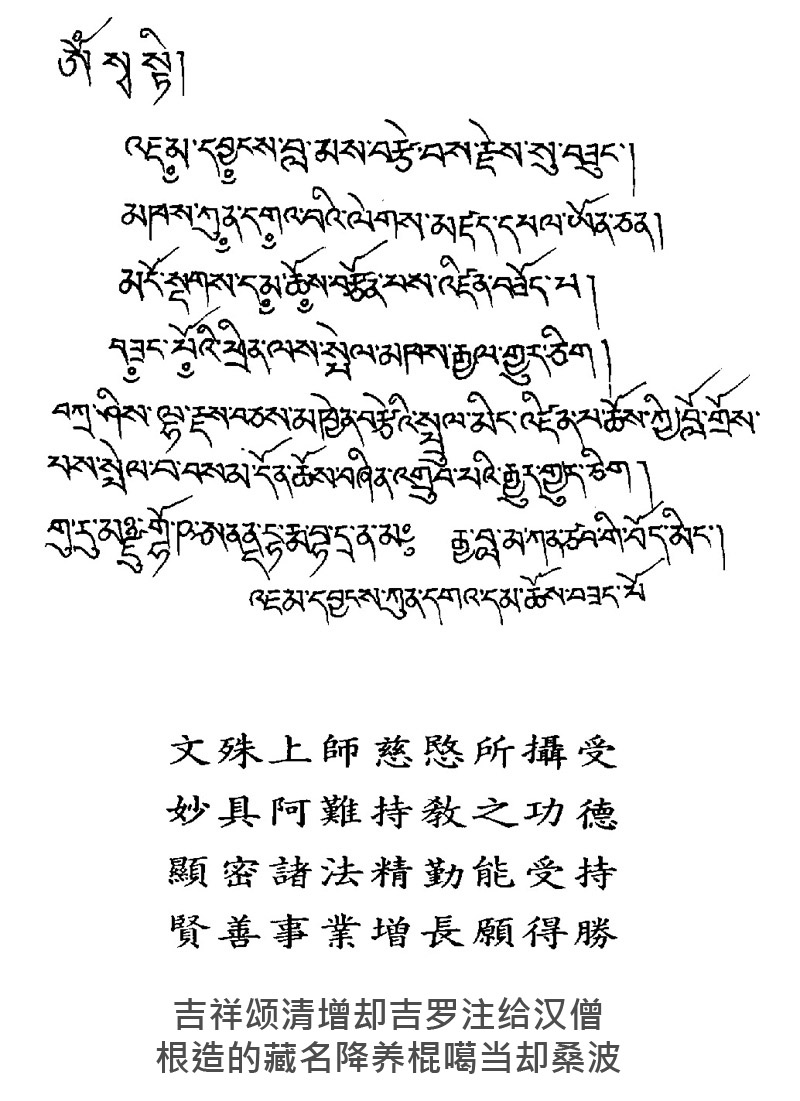 ཨོཾ་སྭ་སྟི།
འཇམ་དབྱངས་བླ་མས་བརྩེ་བས་རྗེས་སུ་བཟུང་།
མཁས་ཀུན་དགའ་བའི་ལེགས་མཛད་དཔལ་ཡོན་ཅན།
མདོ་སྔགས་དམ་ཆོས་བརྩོན་པས་འཛིན་བཟོད་པ།
བཟང་པོའི་ཕྲིན་ལས་སྤེལ་མཁས་རྒྱལ་གྱུར་ཅིག །
བཀྲ་ཤིས་ལྷ་རྫས་བཅས་མཁྱེན་བརྩེའི་སྤྲུལ་མིང་འཛིན་པ་ཆོས་ཀྱི་བློ་གྲོས་
པས་སྤེལ་བ་བསམ་དོན་ཆོས་བཞིན་འགྲུབ་པའི་རྒྱུར་གྱུར་ཅིག །
རྒྱ་བླ་མ་ཀན་ཙབ་གི་བོད་མིང་།
འཇམ་དབྱངས་ཀུན་དགའ་དམ་ཆོས་བཟང་པོ
文殊上師慈愍所攝受
妙具阿難持教之功德
顯密諸法精勤能受持
賢善事業增長願得勝
吉祥颂清增却吉罗注给汉僧
根造的藏名降养棍噶当却桑波